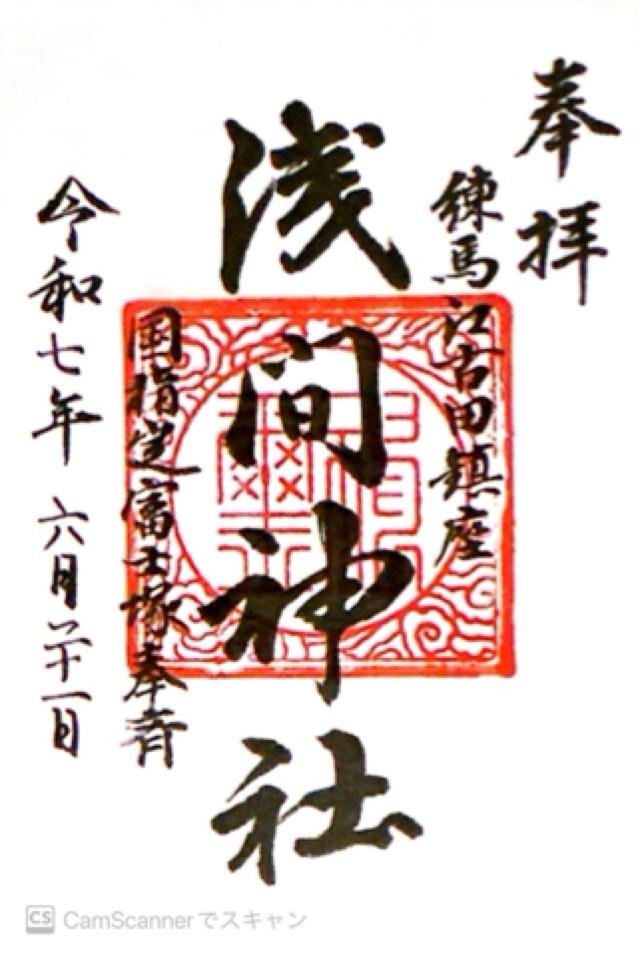 奉拝
練馬江古田鎮座
浅間神社
国指定富士塚奉斉
令和七年 六月二十一日
CS CamScannerでスキャン